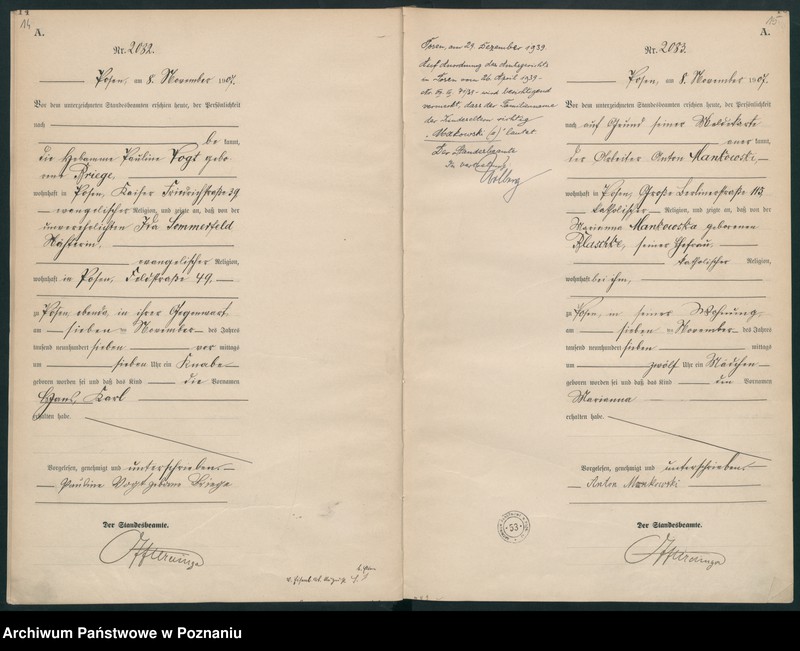 14
A.
Nr. 2082.
Posen, am 8. November 1907.
Vor dem unterzeichneten Standesbeamten erschien heute, der Persönlichkeit
nach
be kannt,
die Hebamme Pauline Vogt gebo
rene Briege,
wohnhaft in Posen, Kaiser Friedrichstraße 29
evangelischer Religion, und zeigte an, daß von der
unverehelichten Ida Sommerfeld
Näherin,
evangelischer Religion,
wohnhaft in Posen, Feldstraße 49,
zu Posen, ebenda, in ihrer Gegenwart
am sieben ten November des Jahres
tausend neunhundert sieben vor mittags
um sieben Uhr ein Knabe
geboren worden sei und daß das Kind die Vornamen
Hans, Karl
erhalten habe.
Vorgelesen, genehmigt und unterschrieben
Pauline Vogt geborne Briege
Der Standesbeamte.
15
A.
Posen, am 29. Dezember 1939.
Auf Anordnung des Amtsgerichts
in Posen vom 26. April 1939
wird berichtigend
vermerkt, dass der Familienname
der Kindeseltern richtig
"Makowski (a)" lautet.
Der Standesbeamte
In Vertretung
Nr. 2083.
Posen, am 8. November 1907.
Vor dem unterzeichneten Standesbeamten erschien heute, der Persönlichkeit
nach auf Grund seiner Meldekarte
aner kannt,
der Arbeiter Anton Mankowski,
wohnhaft in Posen, Große Berlinerstraße 113,
katholischer Religion, und zeigte an, daß von der
Marianna Mankowska geborenen
Blaschke, seiner Ehefrau,
katholischer Religion,
wohnhaft bei ihm,
zu Posen, in seiner Wohnung,
am sieben ten November des Jahres
tausend neunhundert sieben mittags
um zwölf Uhr ein Mädchen
geboren worden sei und daß das Kind den Vornamen
Marianna
erhalten habe.
Vorgelesen, genehmigt und unterschrieben
Anton Mankowski
Der Standesbeamte.
53
Archiwum Państwowe w Poznaniu